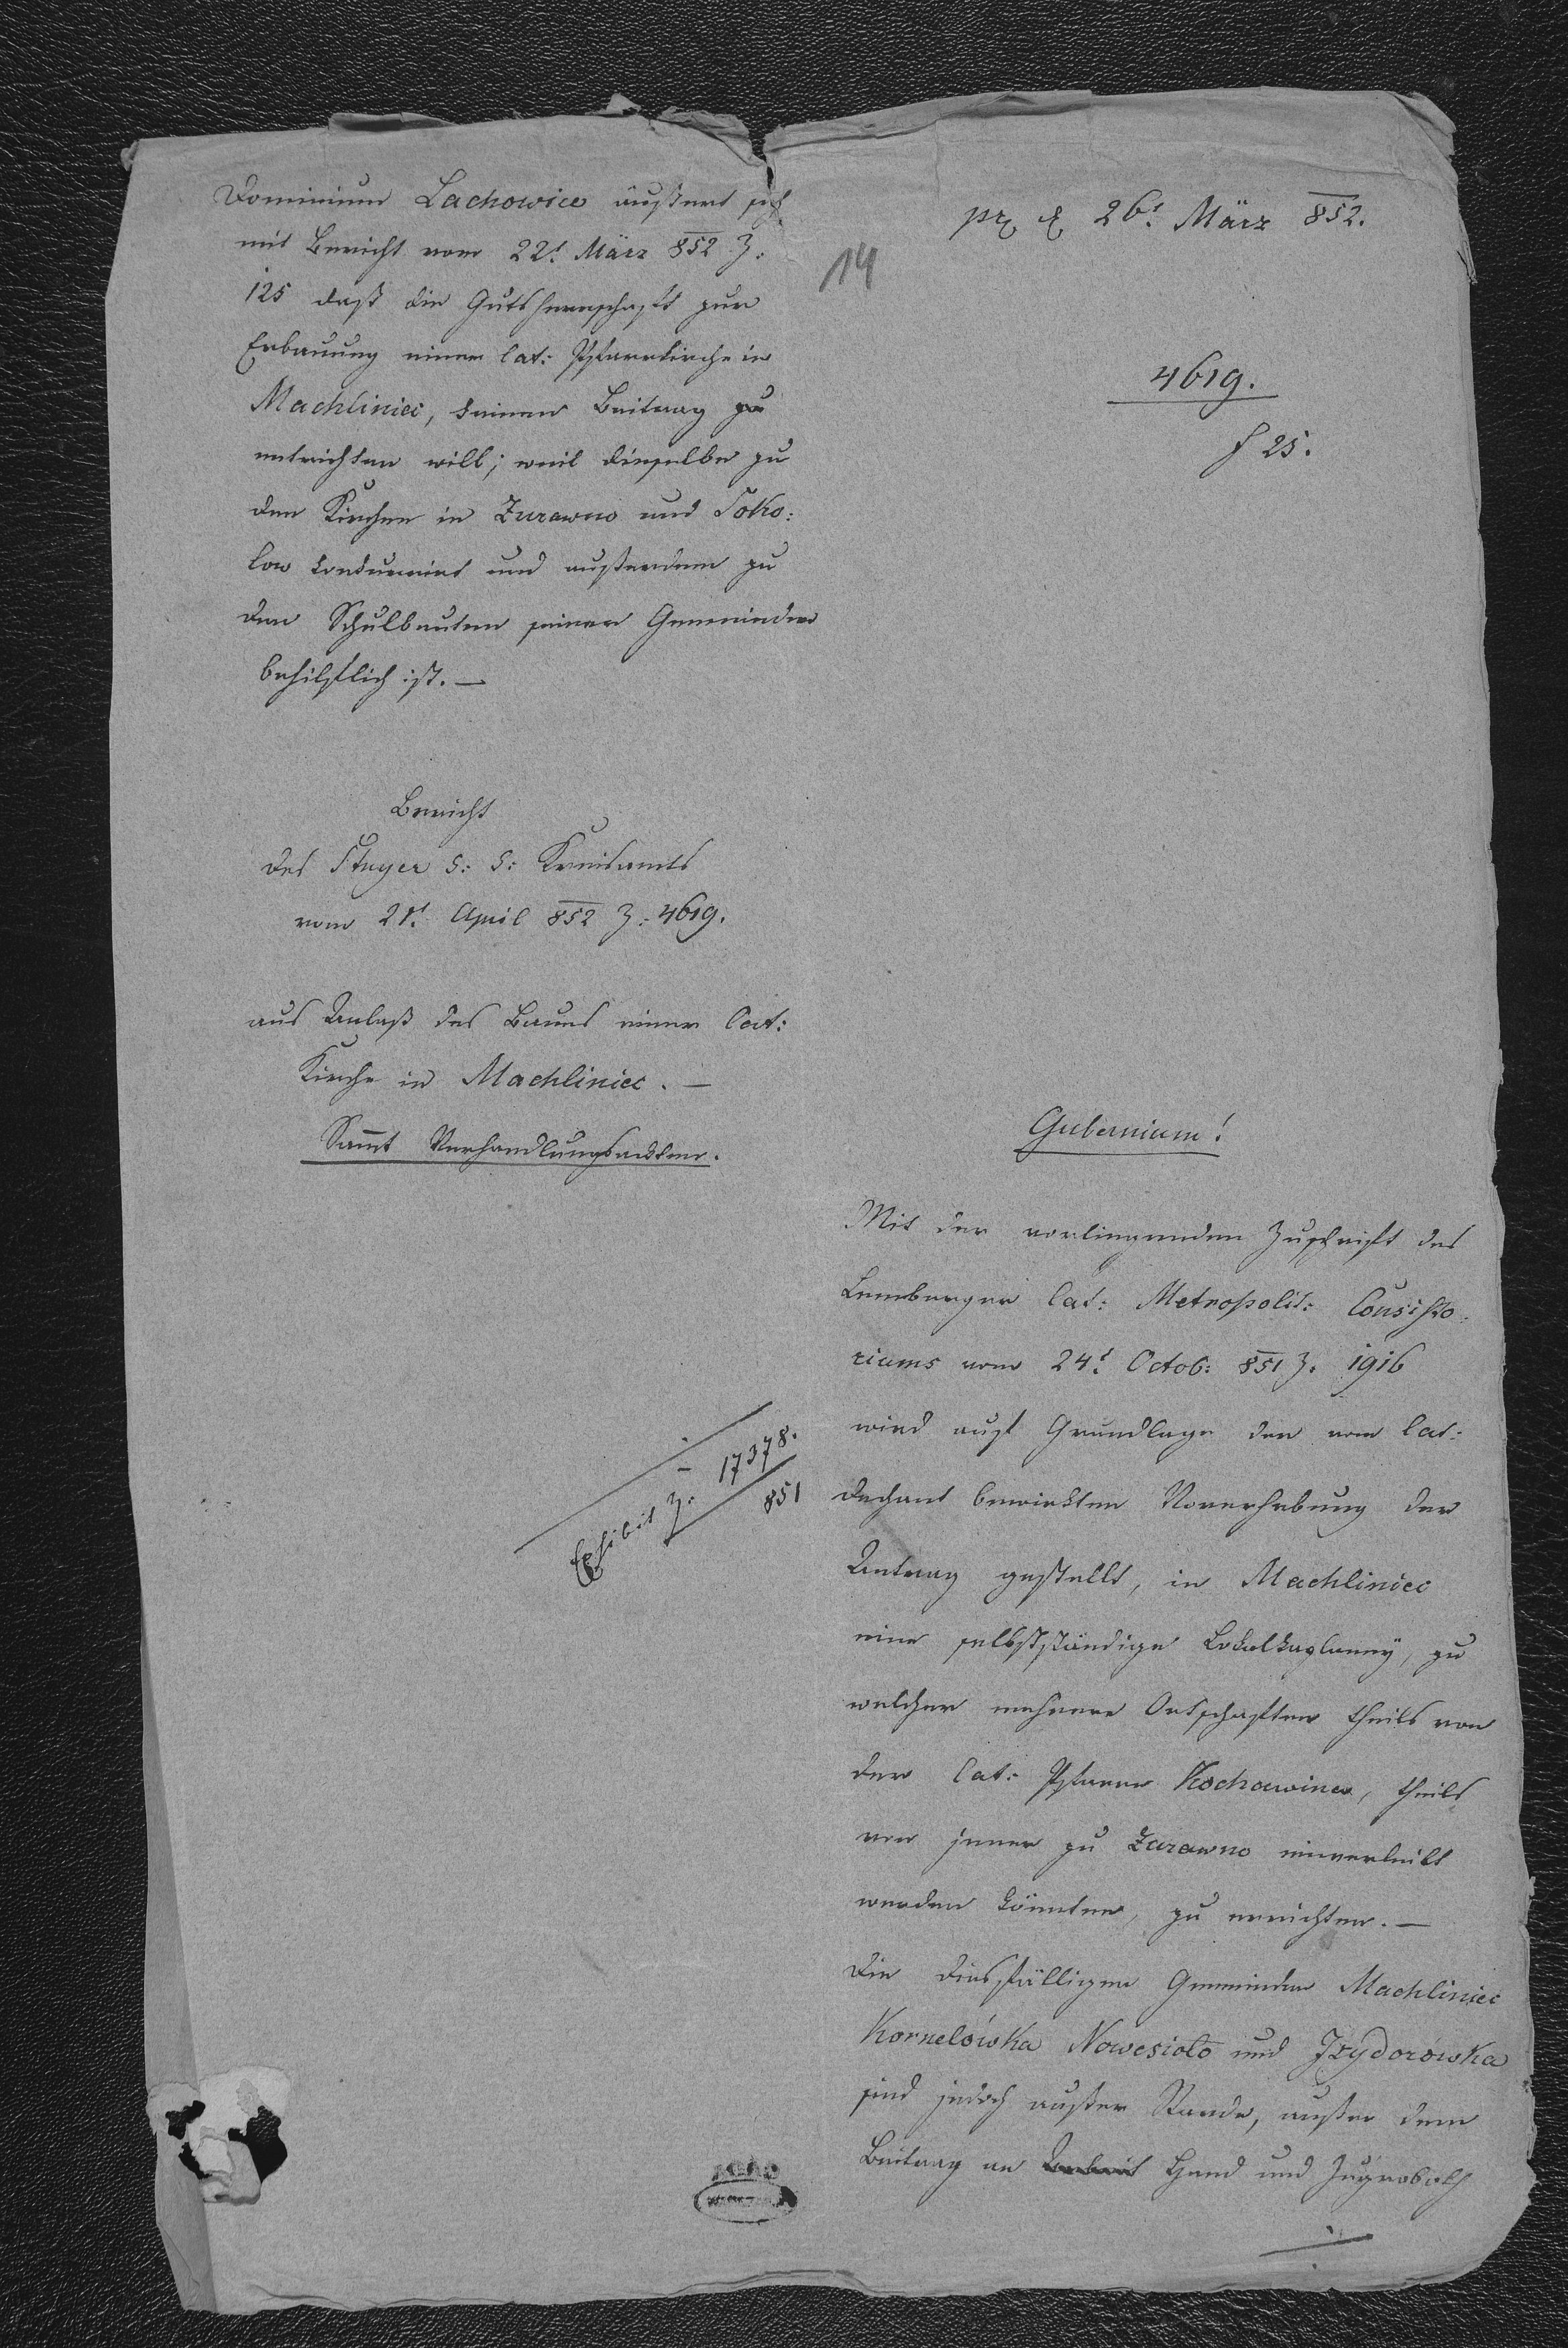 Dominium Lachowice äußert sich
mit Bericht vom 22t März 852 Z.
125 daß die Gutsherrschaft zur
Erbauung einer lat: Pfarrkirche in
Machliniec, keinen Beitrag zu
entrichten will; weil dieselbe zu
den Kirchen in Zurawno und Soko:
low konkurrirt und außerdem zu
den Schulbauten seiner Gemeinden
behilflich ist. —
Bericht
des Stryer k: k: Kreisamts
vom 21t April 852 Z: 4619.
aus Anlaß des Baues einer lat:
Kirche in Machliniec. —
Sammt Verhandlungsakten.
Exhibit Z: 17378.
851
14
26t März 852.
4619.
f 25.
Gubernium!
Mit der vorliegenden Zuschrift des
Lemberger lat: Metropolit: Consisto:
riums vom 24t Octob: 851 Z. 1916
wird auf Grundlage der vom lat:
Dechant bewirkten Vorerhebung der
Antrag gestellt, in Machliniec
eine selbstständige Lokalkaplaney, zu
welcher mehrere Ortschaften theils von
der lat: Pfarre Kochawina, theils
von jener zu Zurawno einverleibt
werden könnten, zu errichten. —
Die diesfälligen Gemeinden Machliniec
Kornelówka Nowesioło und Izydorówka
sind jedoch außer Stande, außer dem
Beitrag an Hand und Zugroboth